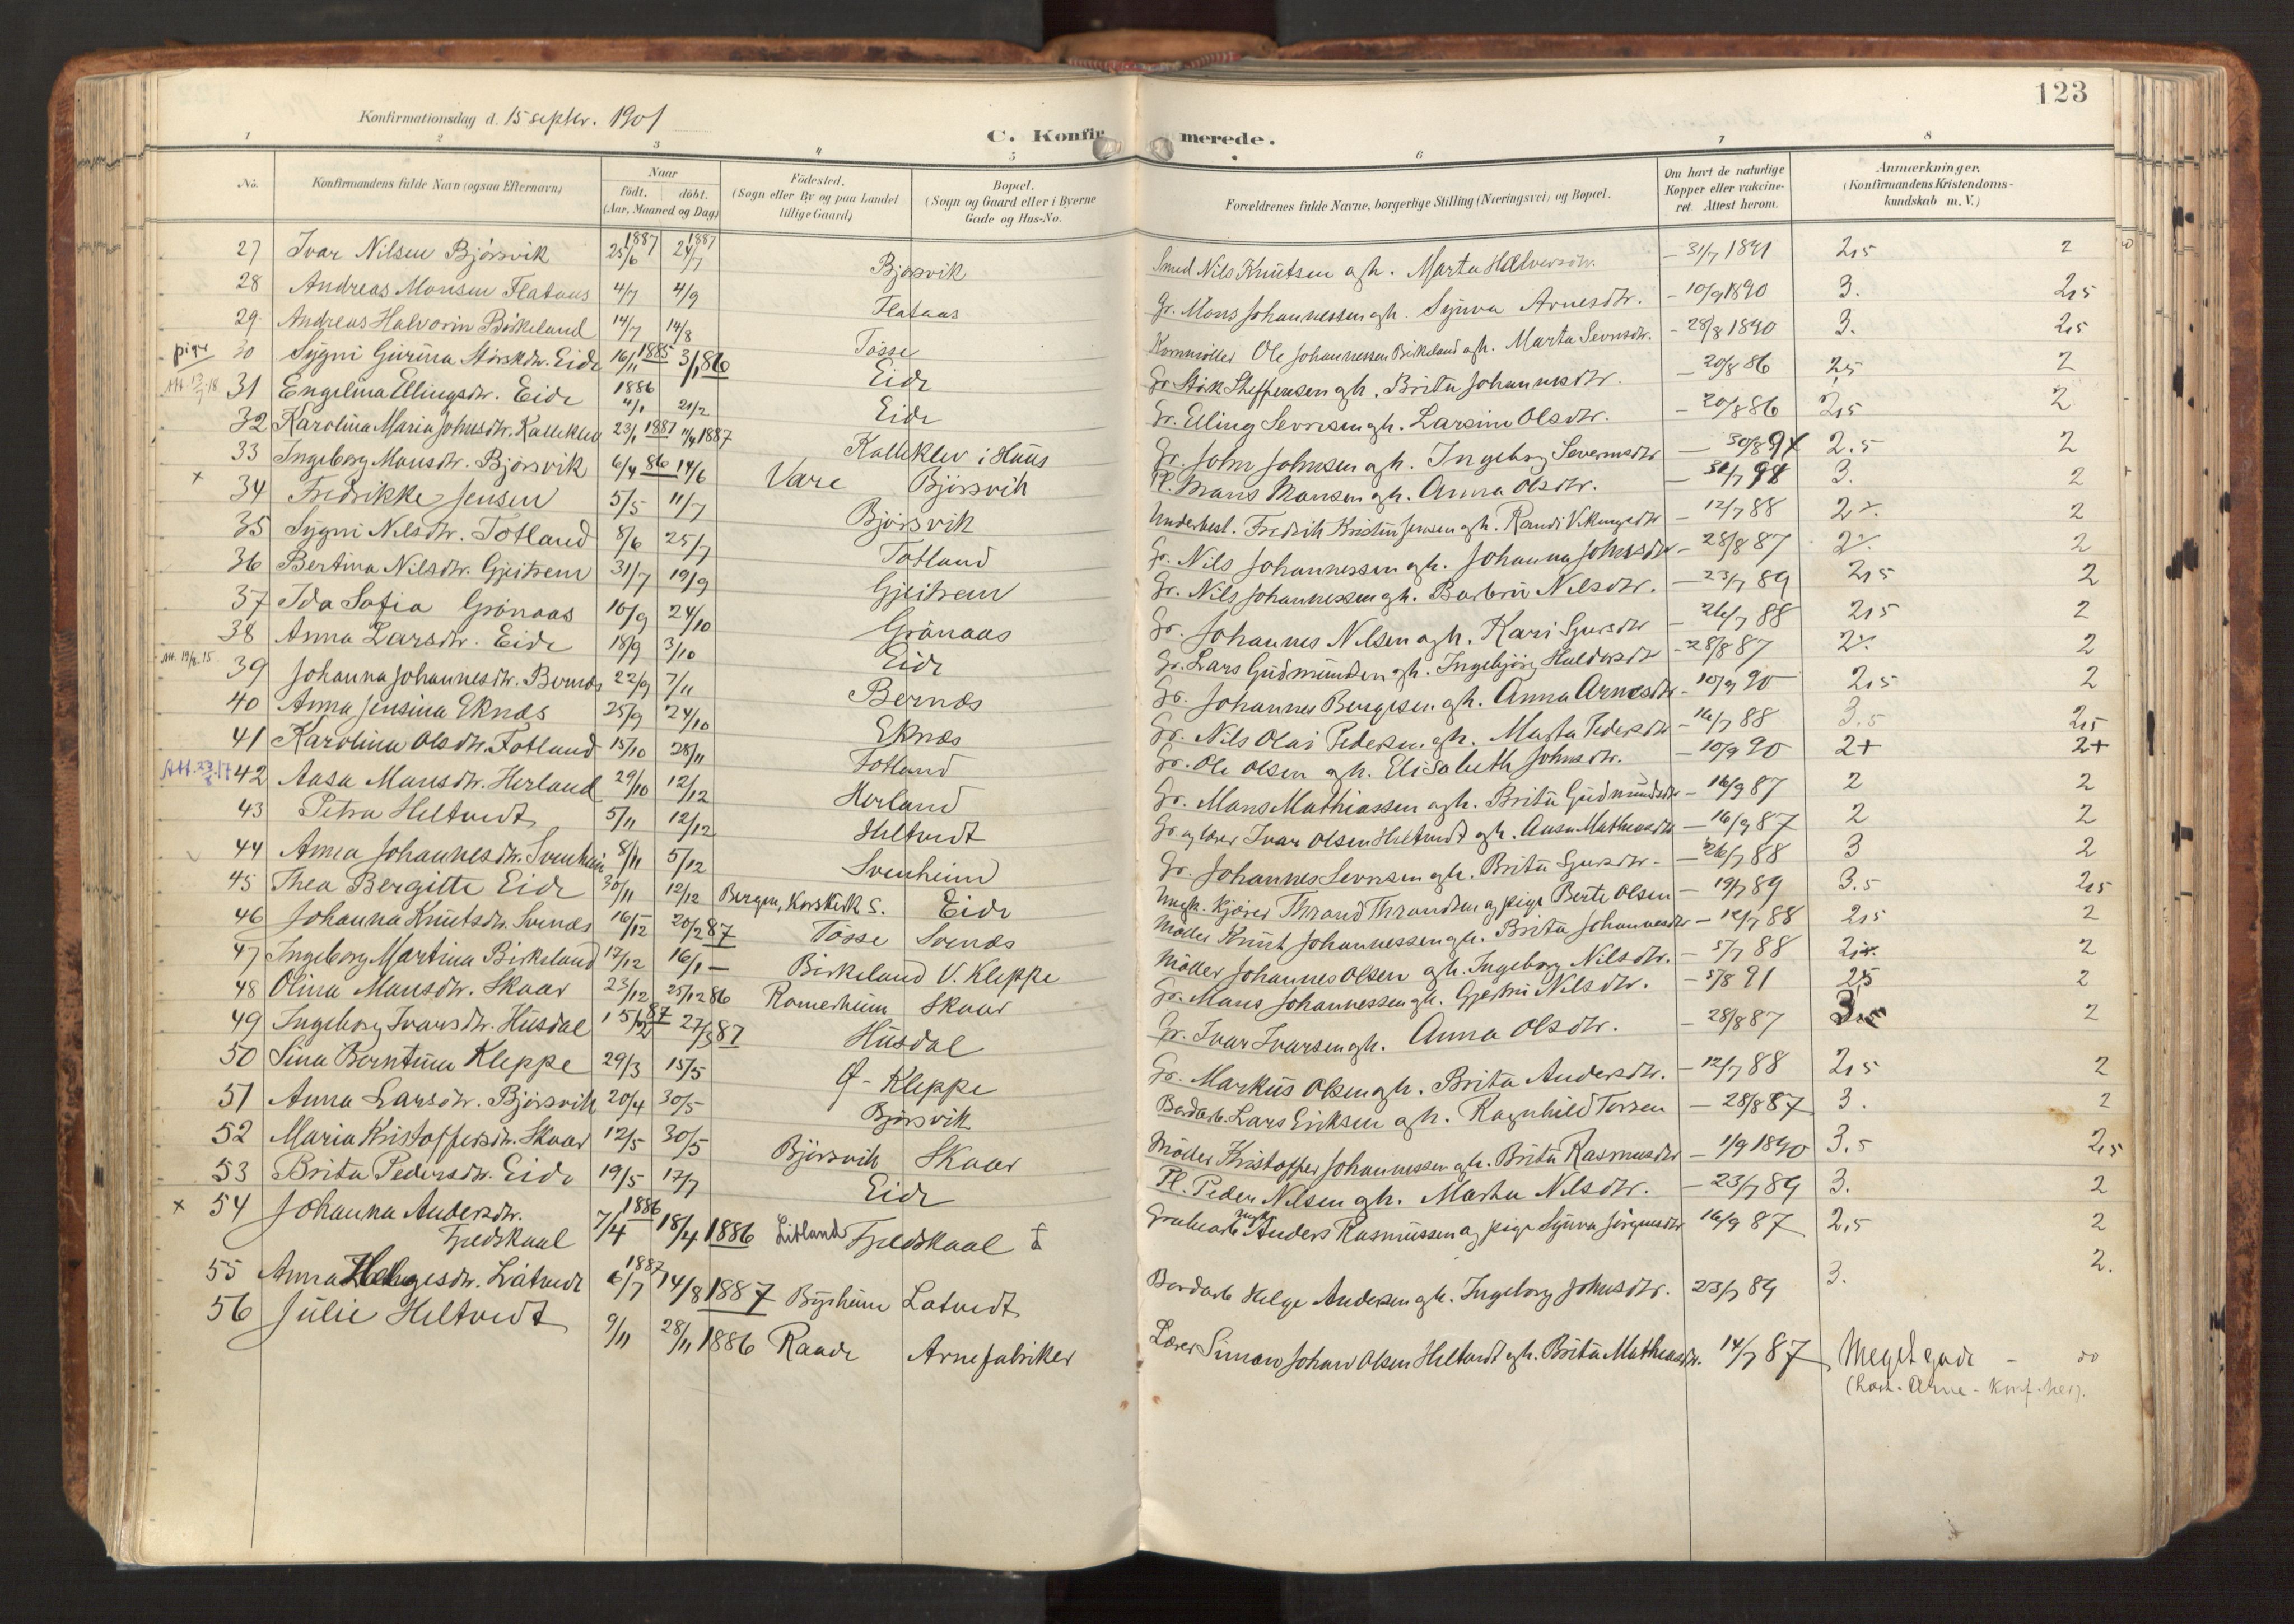 123
Konfirmationsdag d. 15 septbr. 1901
C. Konfirmerede.
1 2 3 4 5 6 7 8
No. Konfirmandens fulde Navn (ogsaa Efternavn) Naar födt. döbt. (Aar, Maaned og Dag) Födested. (Sogn eller By og paa Landet tillige Gaard) Bopæl. (Sogn og Gaard eller i Byerne Gade og Hus-No. Forældrenes fulde Navne, borgerlige Stilling (Næringsvei) og Bopæl. Om havt de naturlige Kopper eller vakcineret. Attest herom. Anmærkninger. (Konfirmandens Kristendomskundskab m. V.)
27 Ivar Nilsen Bjørsvik 25/6 1887 24/7 1887 Bjørsvik Smed Nils Knutsen ogh. Marta Halversdtr. – 31/7 1891 2,5 2
28 Andreas Monsen Flataas 4/7 4/9 Flataas Gr. Mons Johannessen ogh. Synva Arnesdtr. – 10/9 1890 3. 2,5
29 Andreas Halvorin Birkeland 14/7 14/8 Tösse Kornmöller Ole Johannessen Birkeland ogh. Marta Sevrnsdtr. – 28/8 1890 3. 2,5
pige 30 Sygni Gurina Störksdtr. Eide 16/11 1885 3/1 86 Eide Gr. Störk Steffensen ogh. Brita Johannesdtr. – 20/8 86 2,5 2
31 Engelina Ellingsdtr. Eide 1886 4/1 21/2 Eide Gr. Elling Sevrinsen ogh. Larsina Olsdtr. – 20/8 86 2,5 2
32 Karolina Maria Johnsdtr. Kalleklev 23/1 1887 11/4 1887 Kalleklev i Haus Gr. John Johnsen ogh. Ingeborg Severinsdtr – 30/8 94 2.5 2
33 Ingeborg Monsdtr. Bjørsvik 6/4 86 14/6 Vare Bjørsvik Pl. Mons Monsen ogh. Anna Olsdtr. 3. 2
x 34 Fredrikke Jensen 5/5 11/7 Bjørsvik Underbest. Fredrik Kristian Jensen ogh. Randi Vikingsdtr – 12/7 88 2
35 Sygni Nilsdtr. Totland 8/6 25/7 Totland Gr. Nils Johannessen ogh. Johanna Johnsdtr – 28/8 87 2
36 Bertina Nilsdtr. Gjeitrem 31/7 19/9 Gjeitrem Gr. Nils Johannessen ogh. Barbru Nilsdtr. – 23/7 89 2,5 2
37 Ida Sofia Grönaas 10/9 24/10 Grönaas Gr. Johannes Nilsen ogh. Kari Sjursdtr – 26/7 88 2,5 2
38 Anna Larsdtr. Eide 18/9 3/10 Eide Gr. Lars Gudmundsen ogh. Ingebjörg Haldorsdtr – 28/8 87 2
Att. 19/8 15. 39 Johanna Johannesdtr. Bernes 22/9 7/11 Bernes Gr. Johannes Bergesen ogh. Anna Arnesdtr – 10/9 90 2,5 2
40 Anna Jensina Eknes 25/9 24/10 Eknes Gr. Nils Olai Pedersen ogh. Marta Pedersdtr – 16/7 88 3.5 2,5
41 Karolina Olsdtr. Totland 15/10 28/11 Totland Gr. Ole Olsen ogh. Elisabeth Johnsdtr. – 10/9 90 2+ 2+
42 Aasa Mansdtr. Herland 29/10 12/12 Herland Gr. Mons Mathiassen ogh. Brita Gudmundsdtr – 16/9 87 2 2
43 Petra Heltvedt 5/11 12/12 Heltvedt Gr. og lærer Ivar Olsen Heltvedt ogh. Aasa Mathiasdtr – 16/9 87 2 2
44 Anna Johannesdtr. Svenheim 8/11 5/12 Svenheim Gr. Johannes Sevrinsen ogh. Brita Sjursdtr. – 26/7 88 3 2
45 Thea Bergitte Eide 30/11 12/12 Bergen, Korskirk S. Eide Ungk. Kjörer Thrand Thrandsen og pige Berte Olsen – 19/7 89 3.5 2,5
46 Johanna Knutsdtr. Svenes 16/12 20/2 87 Tösse Svenes Möller Knut Johannessen ogh. Brita Johannesdtr – 12/7 88 2,5 2
47 Ingeborg Martina Birkeland 17/12 16/1 – Birkeland V. Kleppe Möller Johannes Olsen ogh. Ingeborg Nilsdtr. – 5/7 88 2
48 Olina Mansdtr. Skaar 23/12 25/12 86 Romerheim Skaar Gr. Mans Johannessen ogh. Gjertri Nilsdtr. – 5/8 91 2,5 2
49 Ingeborg Ivarsdtr. Husdal 15/2 87 27/3 87 Husdal Gr. Ivar Ivarsen ogh. Anna Olsdtr. – 28/8 87 2
50 Sina Berntina Kleppe 29/3 15/5 Ø-Kleppe Gr. Markus Olsen ogh. Brita Andersdtr. – 12/7 88 2,5 2
51 Anna Larsdtr. Bjørsvik 20/4 30/5 Bjørsvik Bordarb. Lars Eriksen ogh. Ragnhild Torsen – 28/8 87 3. 2
52 Maria Kristoffersdtr. Skaar 12/5 30/5 Björsvik Skaar Möller Kristoffer Johannessen ogh. Brita Rasmusdtr – 1/9 1890 3.5 2,5
53 Brita Pedersdtr. Eide 19/5 17/7 Eide Pl. Peder Nilsen ogh. Marta Nilsdtr. – 23/7 89 3. 2
x 54 Johanna Andersdtr. Fjeldskaal 7/4 1886 18/4 1886 Litland Fjeldskaal Grubearb. ungk. Anders Rasmussen og pige Synva Jörgensdtr 16/9 87 2,5 2
55 Anna Helgesdtr. Låtvedt 6/7 1887 14/8 1887 Byrheim Låtvedt Bordarb Helge Andersen ogh. Ingeborg Johnsdtr. 23/7 89 3. 2.
56 Julie Heltvedt 9/11 28/11 1886 Raade Arnefabriker Lærer Simon Johan Olsen Heltvedt ogh. Brita Mathiasdtr. 14/7 87 Meget gode – do